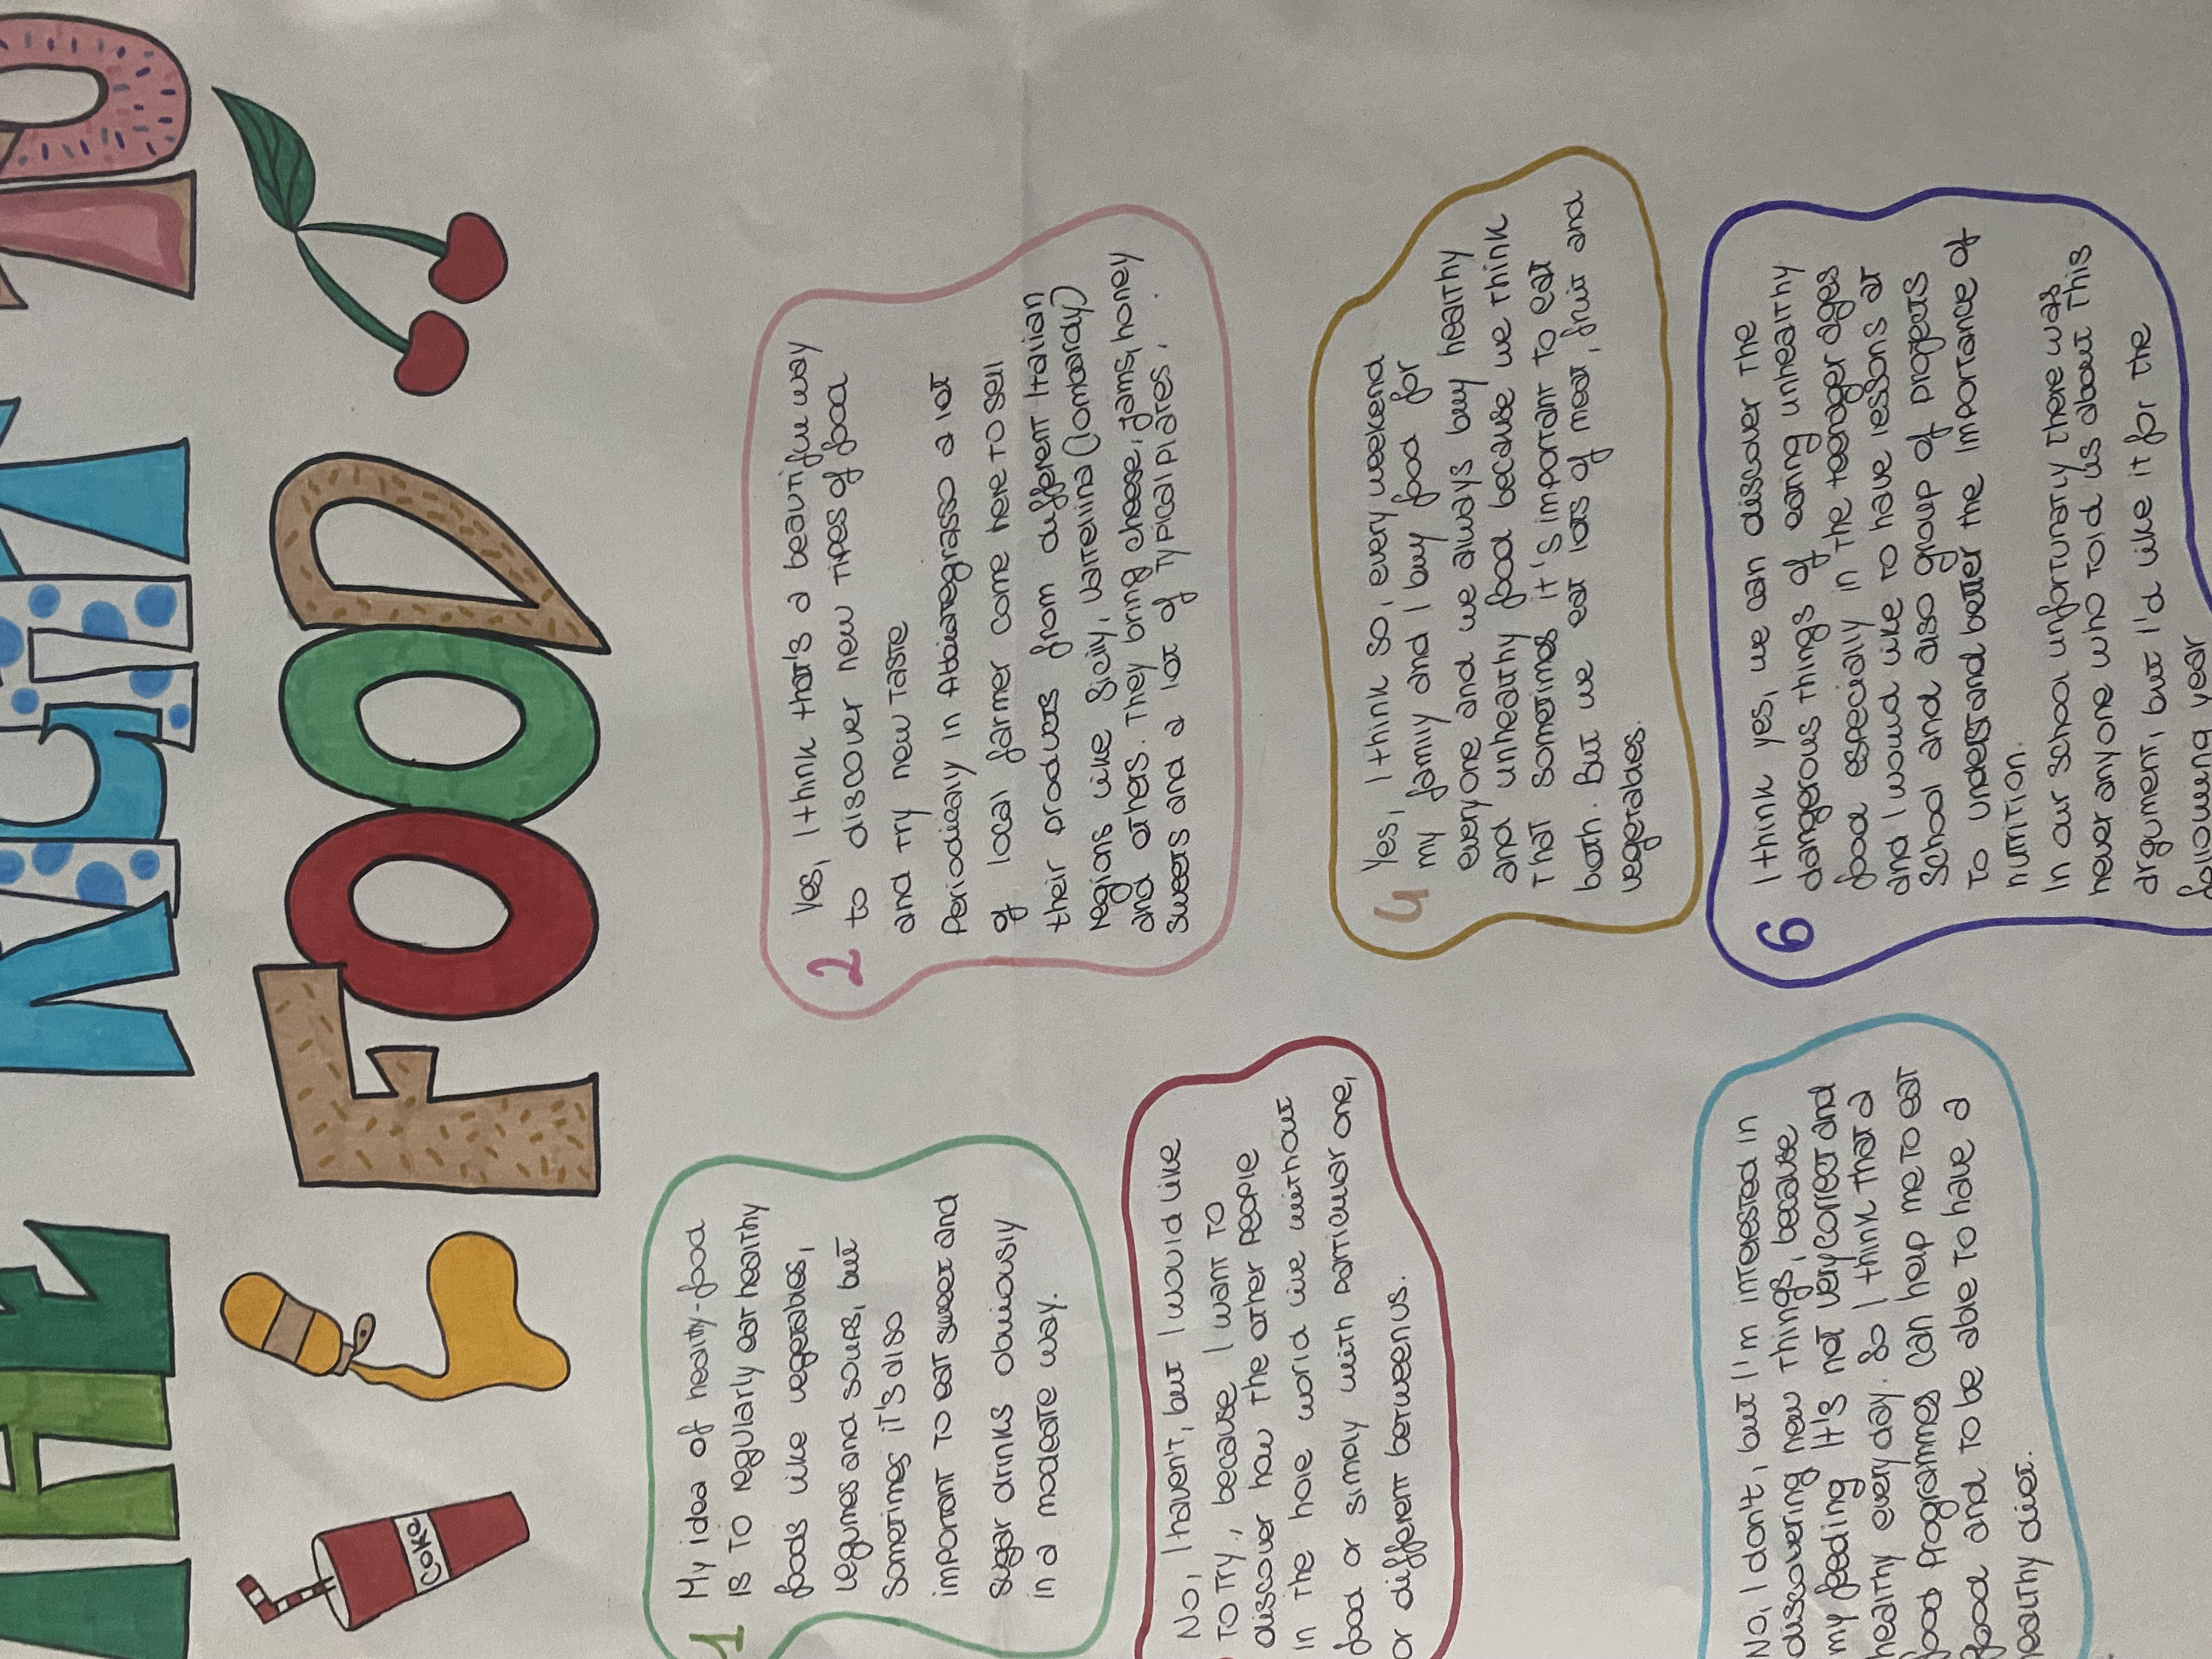 THE RIGHT TO
FOOD
COKE
1
My idea of healthy-food
is to regularly eat healthy
foods like vegetables,
legumes and soups, but
sometimes it's also
important to eat sweet and
sugar drinks obviously
in a modeate way.
2
Yes, I think that's a beautifull way
to discover new types of food
and try new taste
Periodically in Abbiategrasso a lot
of local farmer come here to sell
their products from different Italian
regions like Sicily, Valtellina (Lombardy)
and others. They bring cheese, jams, honey
sweets and a lot of typical plates.
No, I haven't, but I would like
to try, because I want to
discover how the other people
in the hole world live without
food or simply with particular one,
or different between us.
4
Yes, I think so, every weekend
my family and I buy food for
everyone and we always buy healthy
and unhealthy food because we think
that sometimes it's important to eat
both. But we eat lots of meat, fruit and
vegetables.
No, I don't, but I'm interested in
discovering new things, because
my feeding it's not very correct and
healthy every day. So I think that a
food programmes can help me to eat
food and to be able to have a
healthy diet.
6
I think yes, we can discover the
dangerous things of eating unhealthy
food especially in the teenager ages
and I would like to have lessons at
school and also group of projects
to understand better the importance of
nutrition.
In our school unfortunatly there was
never anyone who told us about this
argument, but I'd like it for the
following year